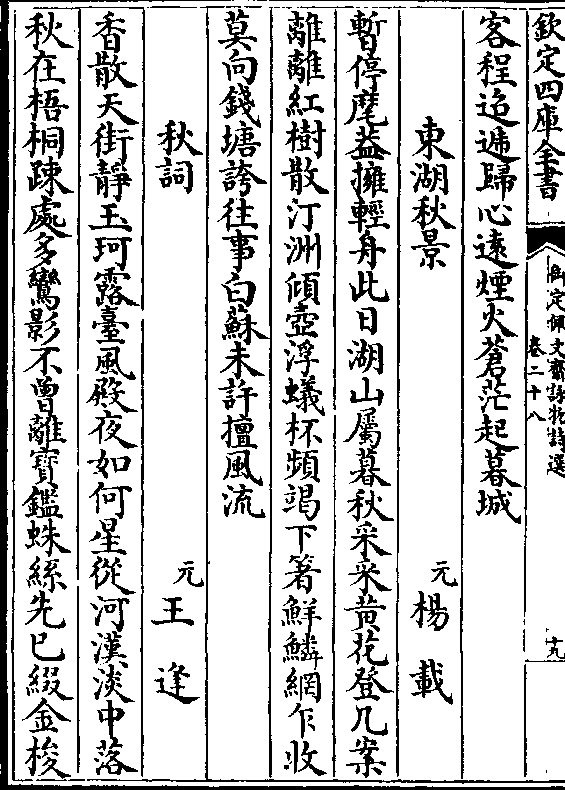 欽定四庫全書
御定佩文齋詠物詩選
卷二十八
十九
客程迢遞歸心遠煙火蒼茫起暮城
東湖秋景
元 楊載
暫停麾蓋擁輕舟此日湖山屬暮秋采采黄花登几案
離離紅樹散汀洲傾壺浮蟻杯頻竭下箸鮮鱗網乍收
莫向錢塘誇往事白蘇未許擅風流
秋詞
元 王逢
香散天街靜玉珂露臺風殿夜如何星從河漢淡中落
秋在梧桐踈處多鸞影不曾離寳鑑蛛絲先已綴金梭